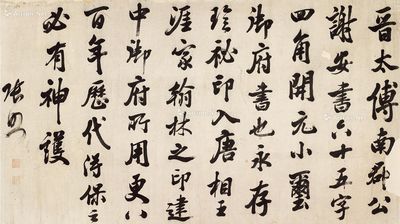 晉太傅南郡公
謝安書六十五字
四角開元小璽
御府書也永存
珍祕印入唐相王
涯家翰林之印建
中御府所用更八
百年歷代得保之
必有神護
張照